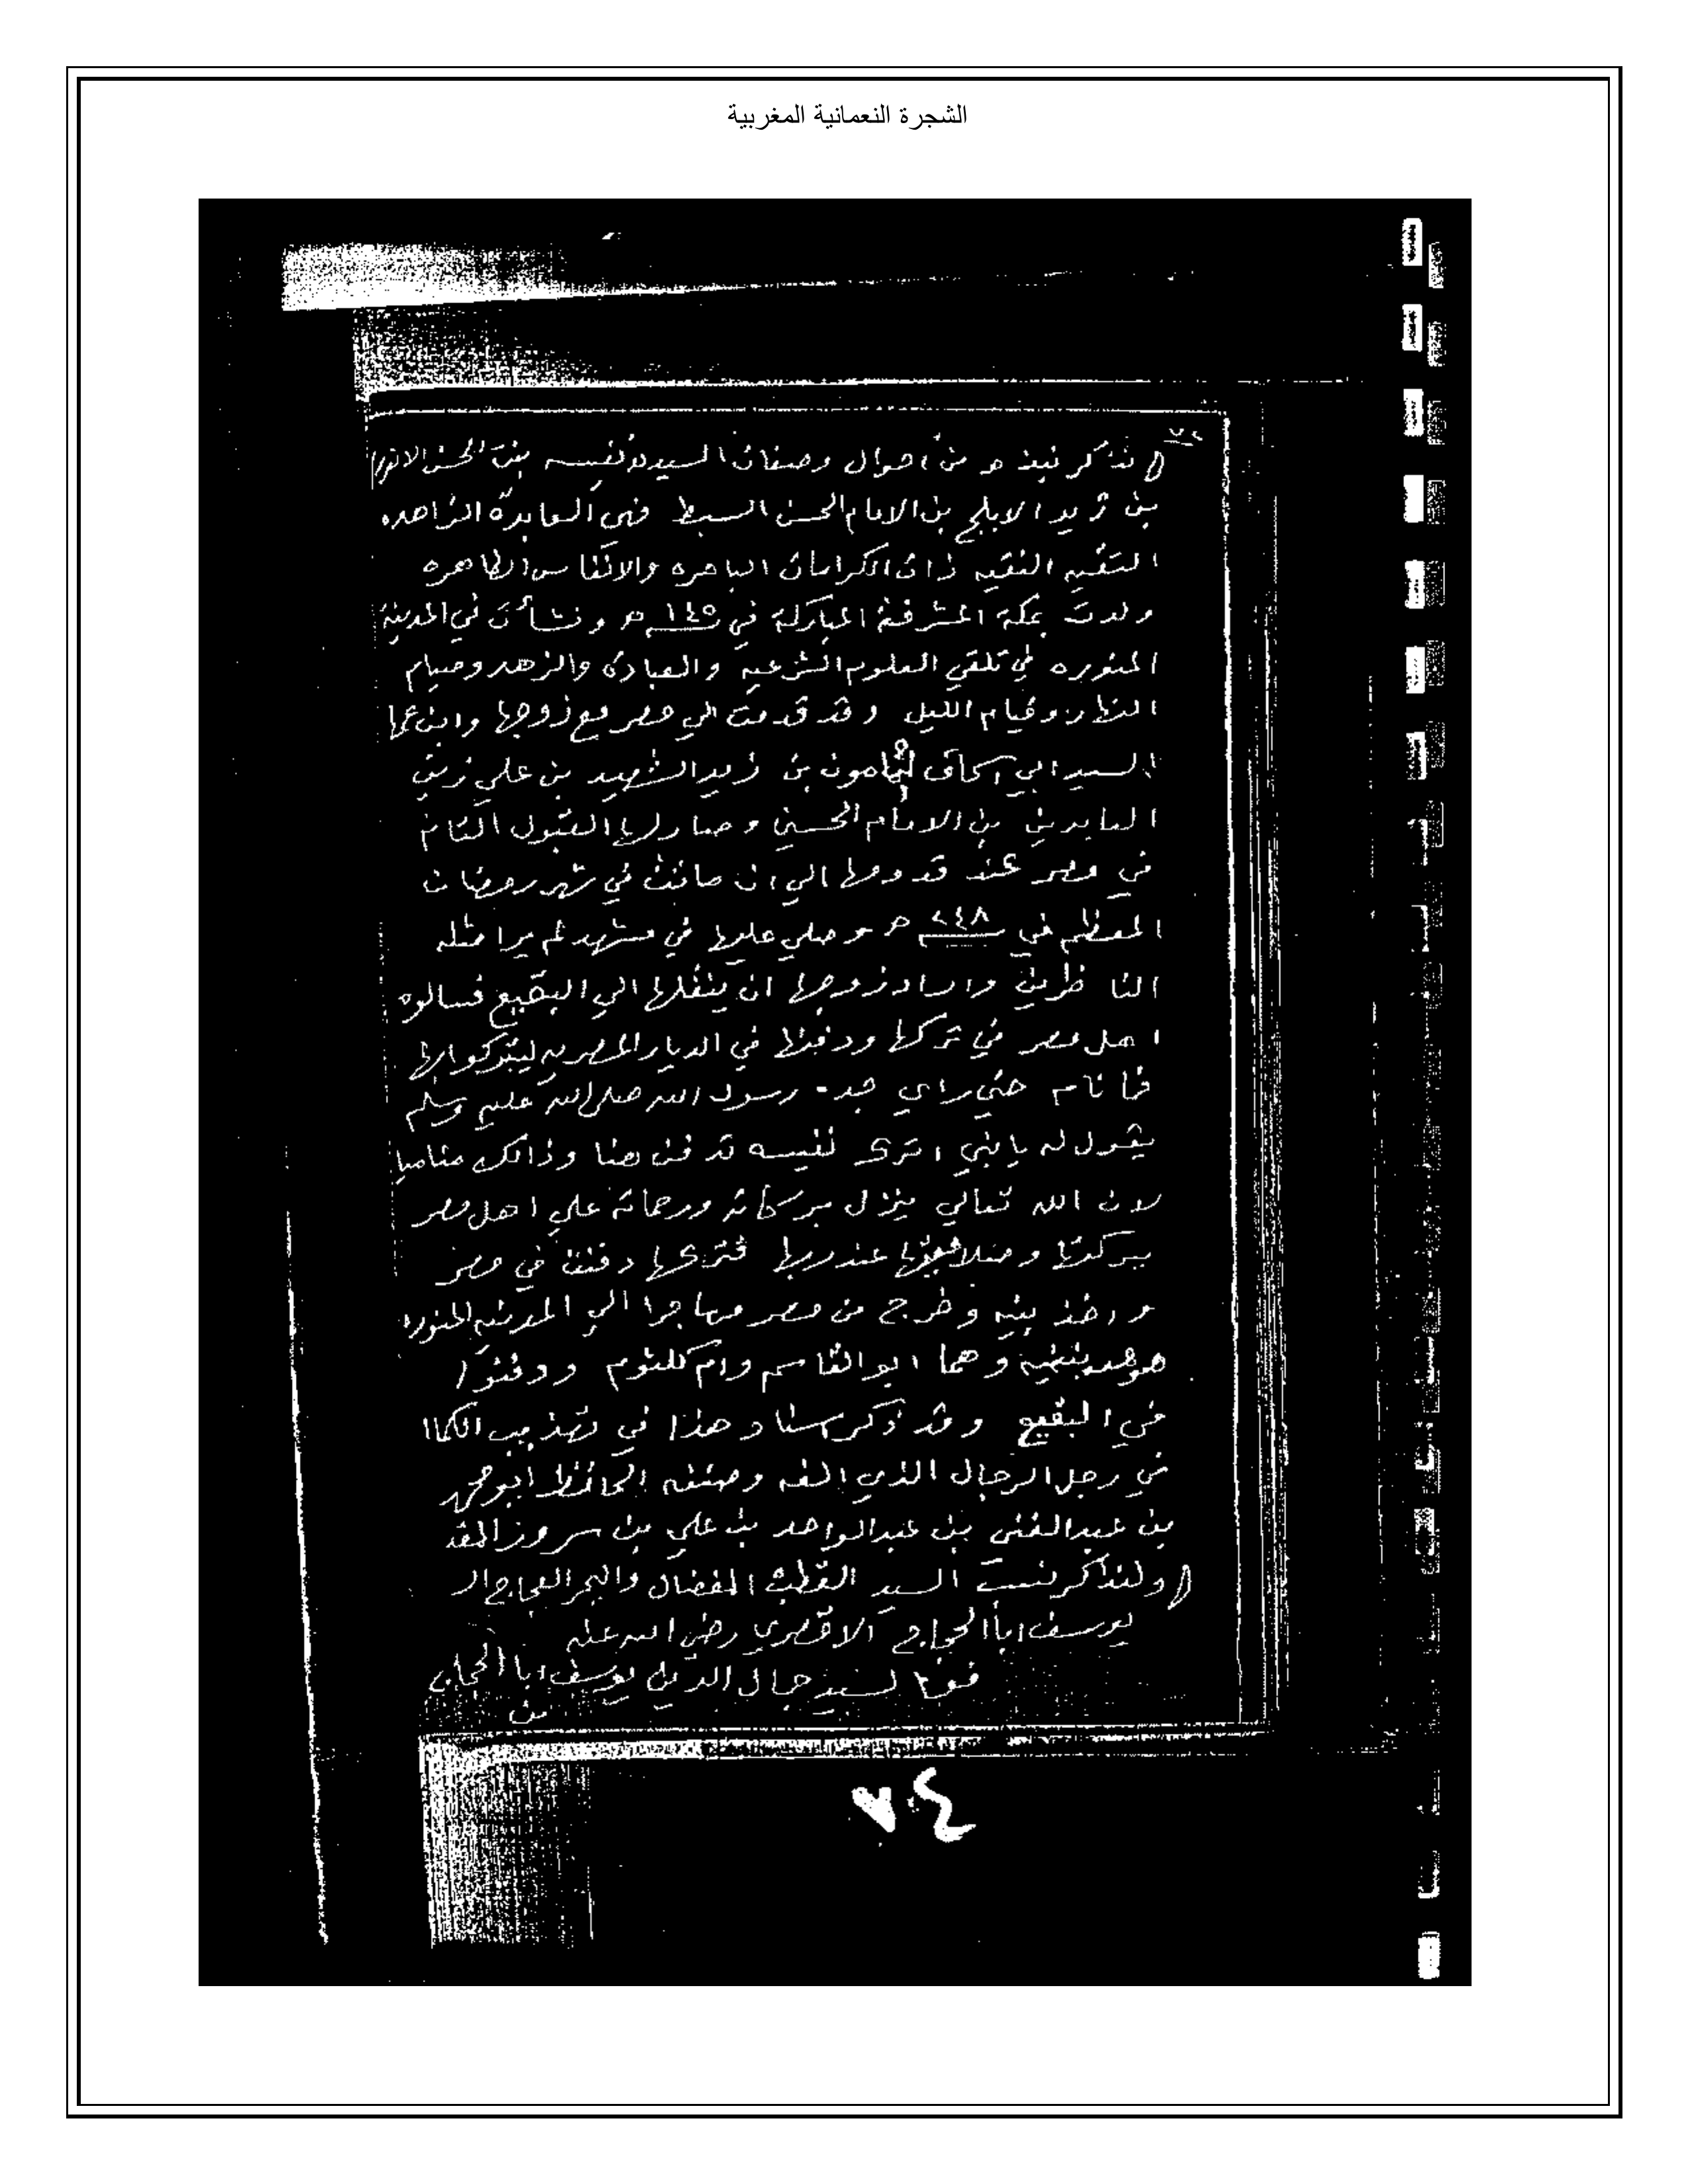 الشجرة النعمانية المغربية
٧٤
نذكر نبذه من أحوال وصفات السيده نفيسه بنت الحسن الانور
بن زيد الابلج بن الامام الحسن السبط فهي العابدة الزاهده
التقيه النقيه ذات الكرامات الباهره والانفاس الطاهره
ولدت بمكة المشرفة المباركة في ١٤٥ ه ونشأت في المدينة
المنوره في تلقي العلوم الشرعيه والعباده والزهد وصيام
النهار وقيام الليل وقد قدمت الي مصر مع زوجها وابن عمها
السيد ابي اسحاق بن زيد الشهيد بن علي زين
العابدين بن الامام الحسين وصار لها القبول التام
في مصر عند قدومها الي ان ماتت في شهر رمضان
المعظم في ٢٤٨ ه وصلي عليها في مشهد لم يرا مثله
الناظرين واراد زوجها ان ينقلها الي البقيع فسالوه
اهل مصر في تركها ودفنها في الديار المصريه ليتبركوا بها
فنام حتي راي جده رسول الله صلى الله عليه وسلم
يقول له يابني اترك نفيسه تدفن هنا وذالك مناميا
لان الله تعالي ينزل بركاته ورحماته علي اهل مصر
ببركتها عند ربها فتركها دفنت في مصر
واخذ بنيه وخرج من مصر مهاجرا الي المدينه المنوره
وهما ابو القاسم وام كلثوم ودفنوا
في البقيع وقد ذكر اسناد هذا في تهذيب الكمال
في الرجال الذي الفه وصنفه الحافظ ابو محمد
بن عبدالغني بن عبدالواحد بن علي بن سرور المقد
ولنذكر نسب السيد القطب المفضال والبحر العجاج
يوسف ابا الحجاج الاقصري رضي الله عنه
السيد جمال الدين يوسف ابا الحجاج
بن
٧٤